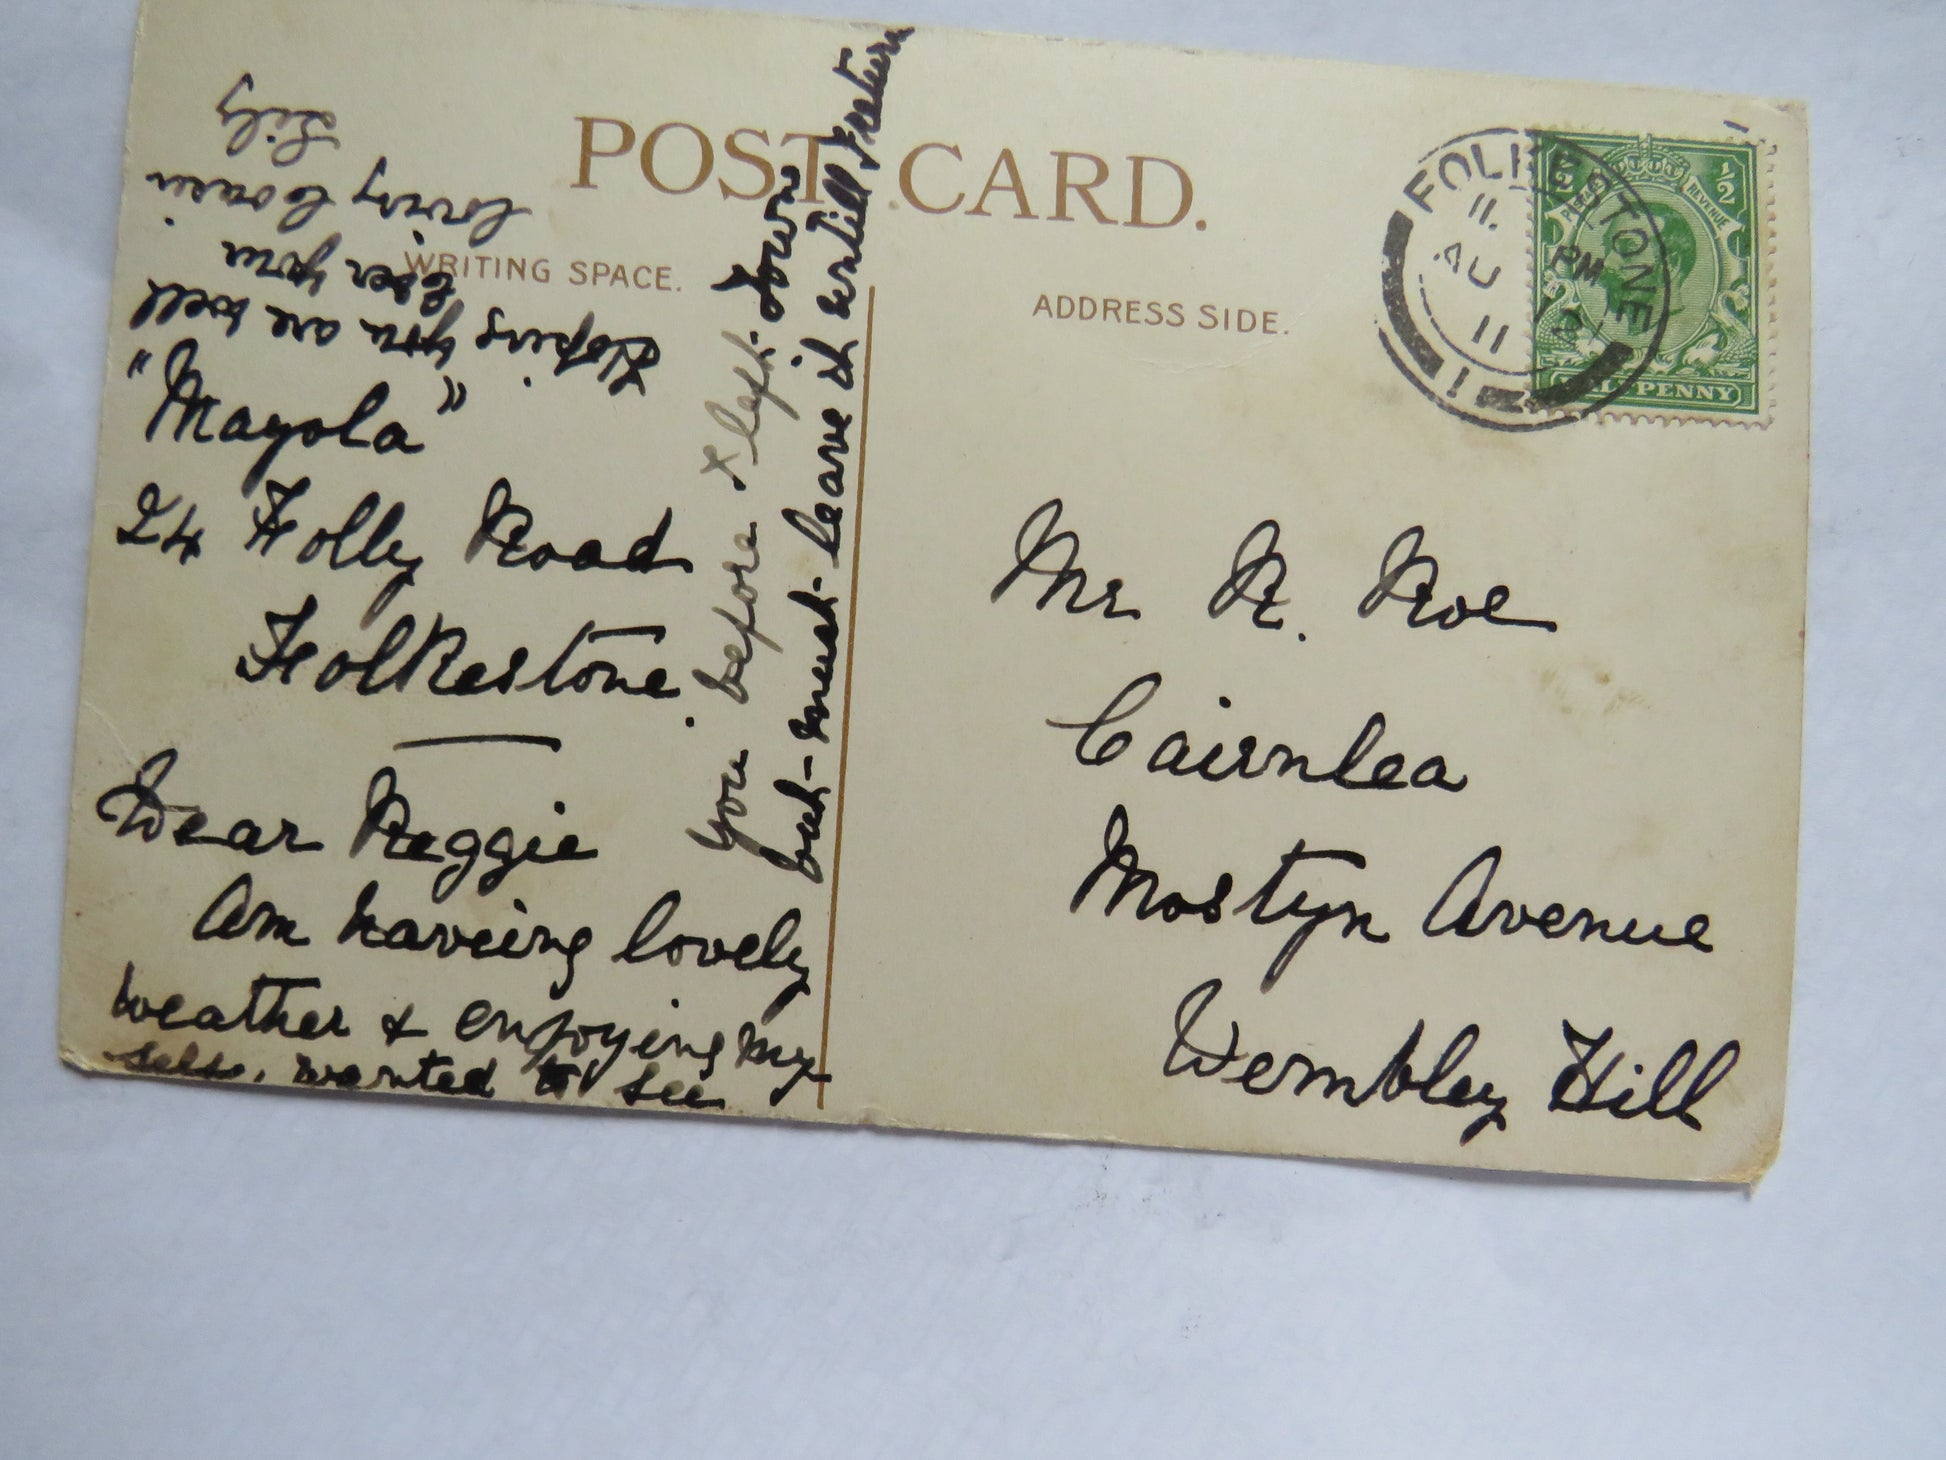 POST CARD.
WRITING SPACE.
ADDRESS SIDE.
FOLKESTONE
PM
AU 12
11
POSTAGE REVENUE
1/2
HALFPENNY
"Mayola"
24 Folly Road
Folkestone.
Dear Reggie
Am haveing lovely
weather & enjoying my
self, wanted to see
you before I left Town
but must leave it untill I return
Hoping you are well
Ever your
loving Cousin
Lily
Mr R. Roe
Cairnlea
Mostyn Avenue
Wembley Hill